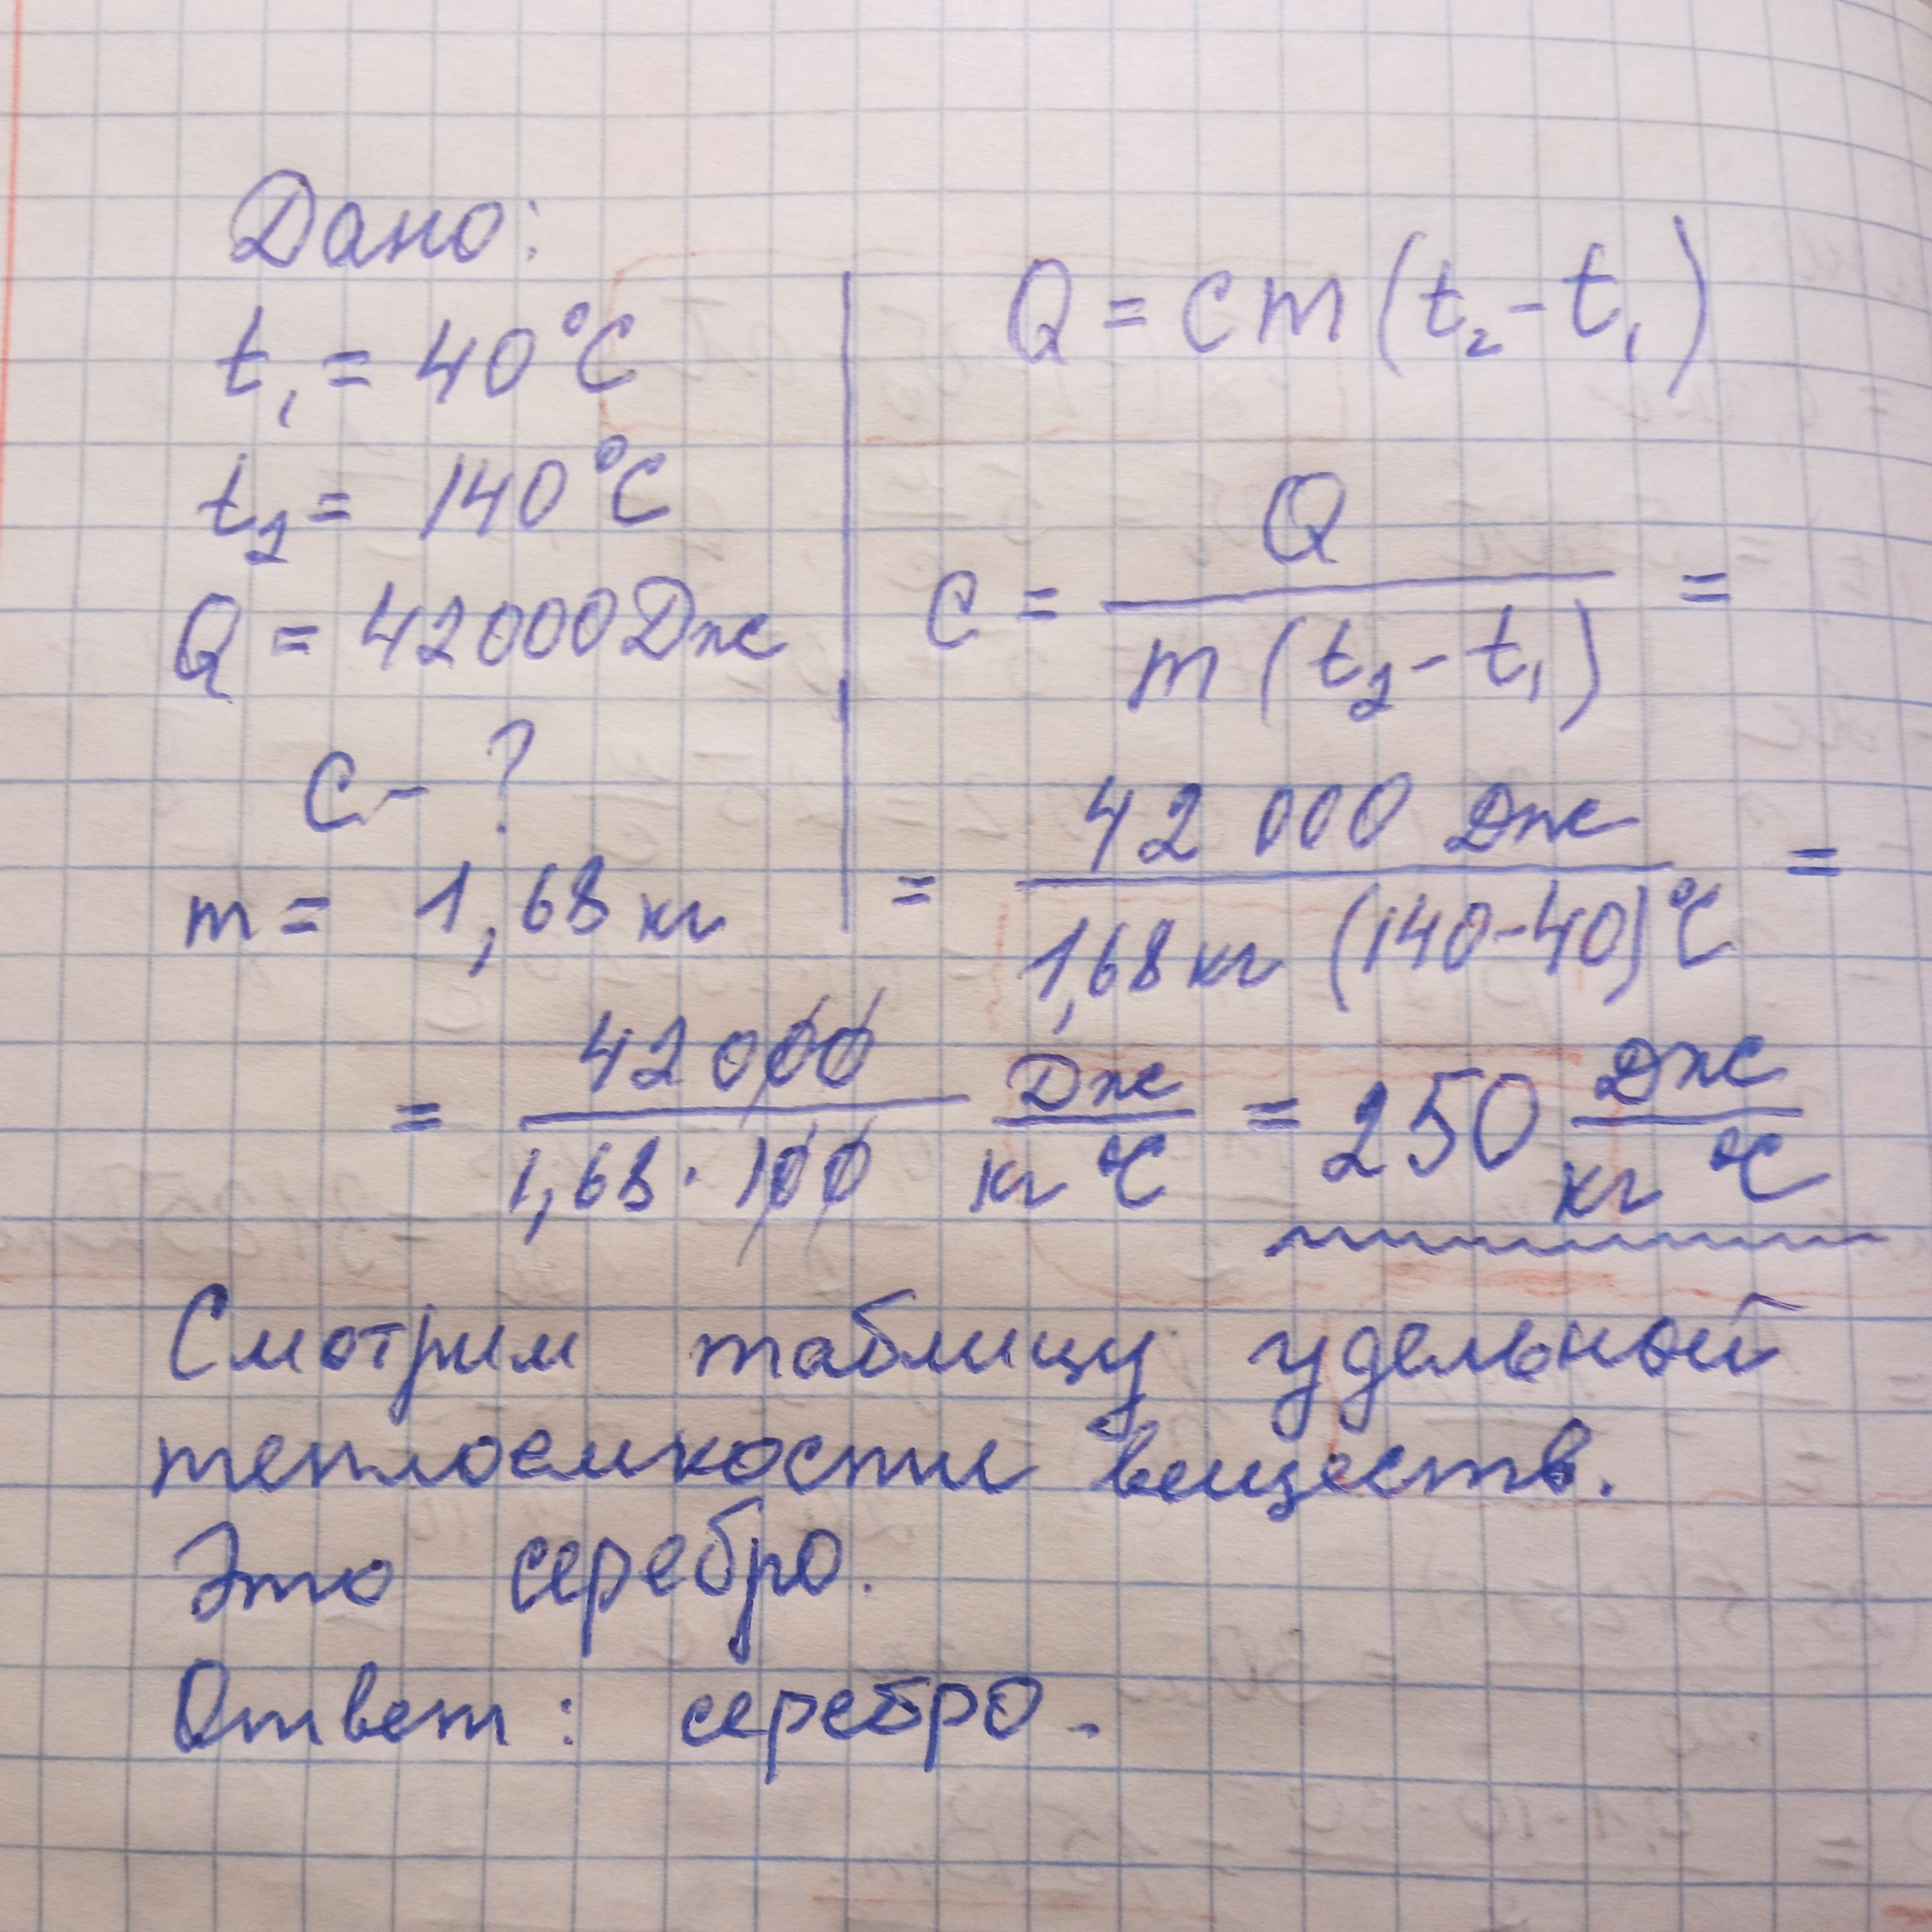 Дано:
t₁ = 40°C
t₂ = 140°C
Q = 42000 Дж
c - ?
m = 1,68 кг
Q = cm(t₂ - t₁)
c = Q / m(t₂ - t₁) =
= 42 000 Дж / 1,68 кг (140-40)°C =
= 42 000 / 1,68 · 100 Дж / кг °C = 250 Дж / кг °C
Смотрим таблицу удельной
теплоемкости веществ.
Это серебро.
Ответ: серебро.